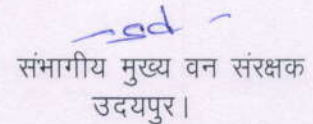 sd
संभागीय मुख्य वन संरक्षक
उदयपुर।